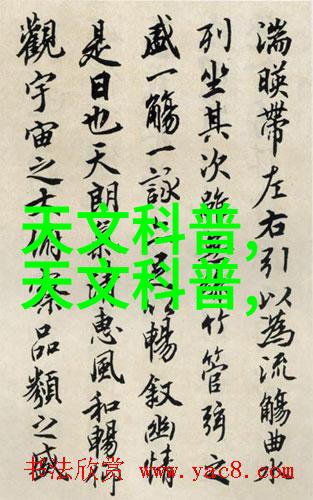 湍暎帶左右引以為流觴曲
列坐其次雖竹管弦之
盛一觴一詠暢叙幽情
是日也天朗惠風和暢仰
觀宇宙之俯察品類之盛
天文科普,
天文科普,
书法欣赏 www.yac8.com